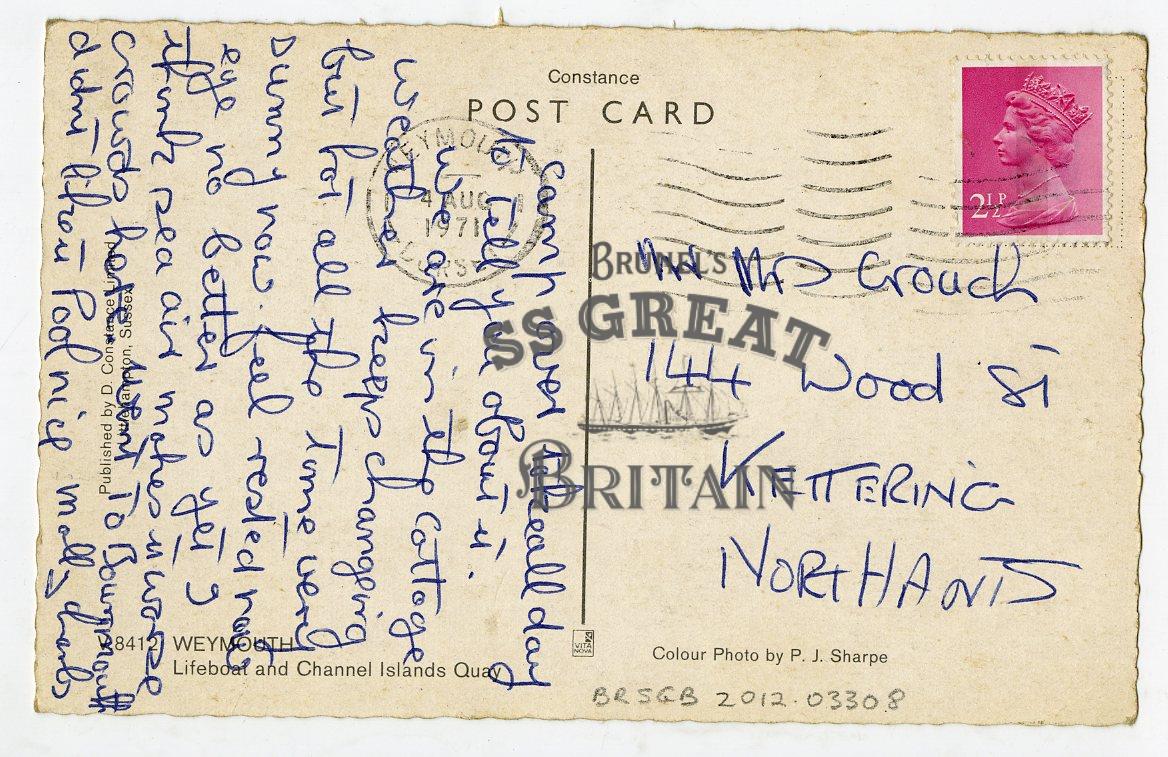 Constance
POST CARD
WEYMOUTH
4 AUG
1971
DORSET
2½P
Camp over all day
to tell you about it.
We are in the Cottage
weather keeps changing
but hot all the time very
sunny now. feel rested now
eye no better as yet I
think sea air makes worse
crowds here went to Bournmouth
didnt Pool nice
Mrs Crouch
144 Wood St
KETTERING
NORTHANTS
BRUNEL'S
SS GREAT
BRITAIN
Published by D. Constance Limited
Littlehampton, Sussex
8412 WEYMOUTH
Lifeboat and Channel Islands Quay
VITA
NOVA
Colour Photo by P. J. Sharpe
BRSGB 2012.03308